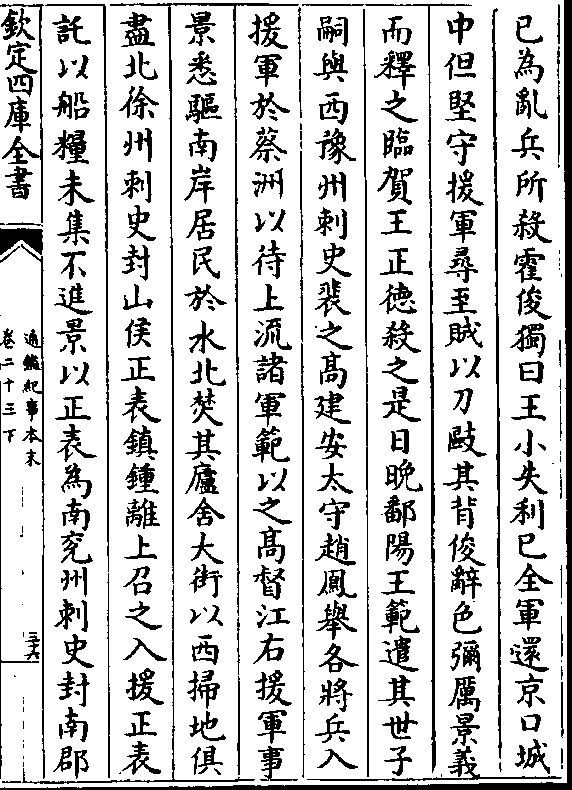 已為亂兵所殺霍俊獨曰王小失利已全軍還京口城
中但堅守援軍尋至賊以刀毆其背俊辭色彌厲景義
而釋之臨賀王正德殺之是日晚鄱陽王範遣其世子
嗣與西豫州刺史裴之高建安太守趙鳳舉各將兵入
援軍於蔡洲以待上流諸軍範以之高督江右援軍事
景悉驅南岸居民於水北焚其廬舍大街以西掃地俱
盡北徐州刺史封山侯正表鎮鍾離上召之入援正表
託以船糧未集不進景以正表為南兖州刺史封南郡
欽定四庫全書
通鑑紀事本末
卷二十三下
三十六